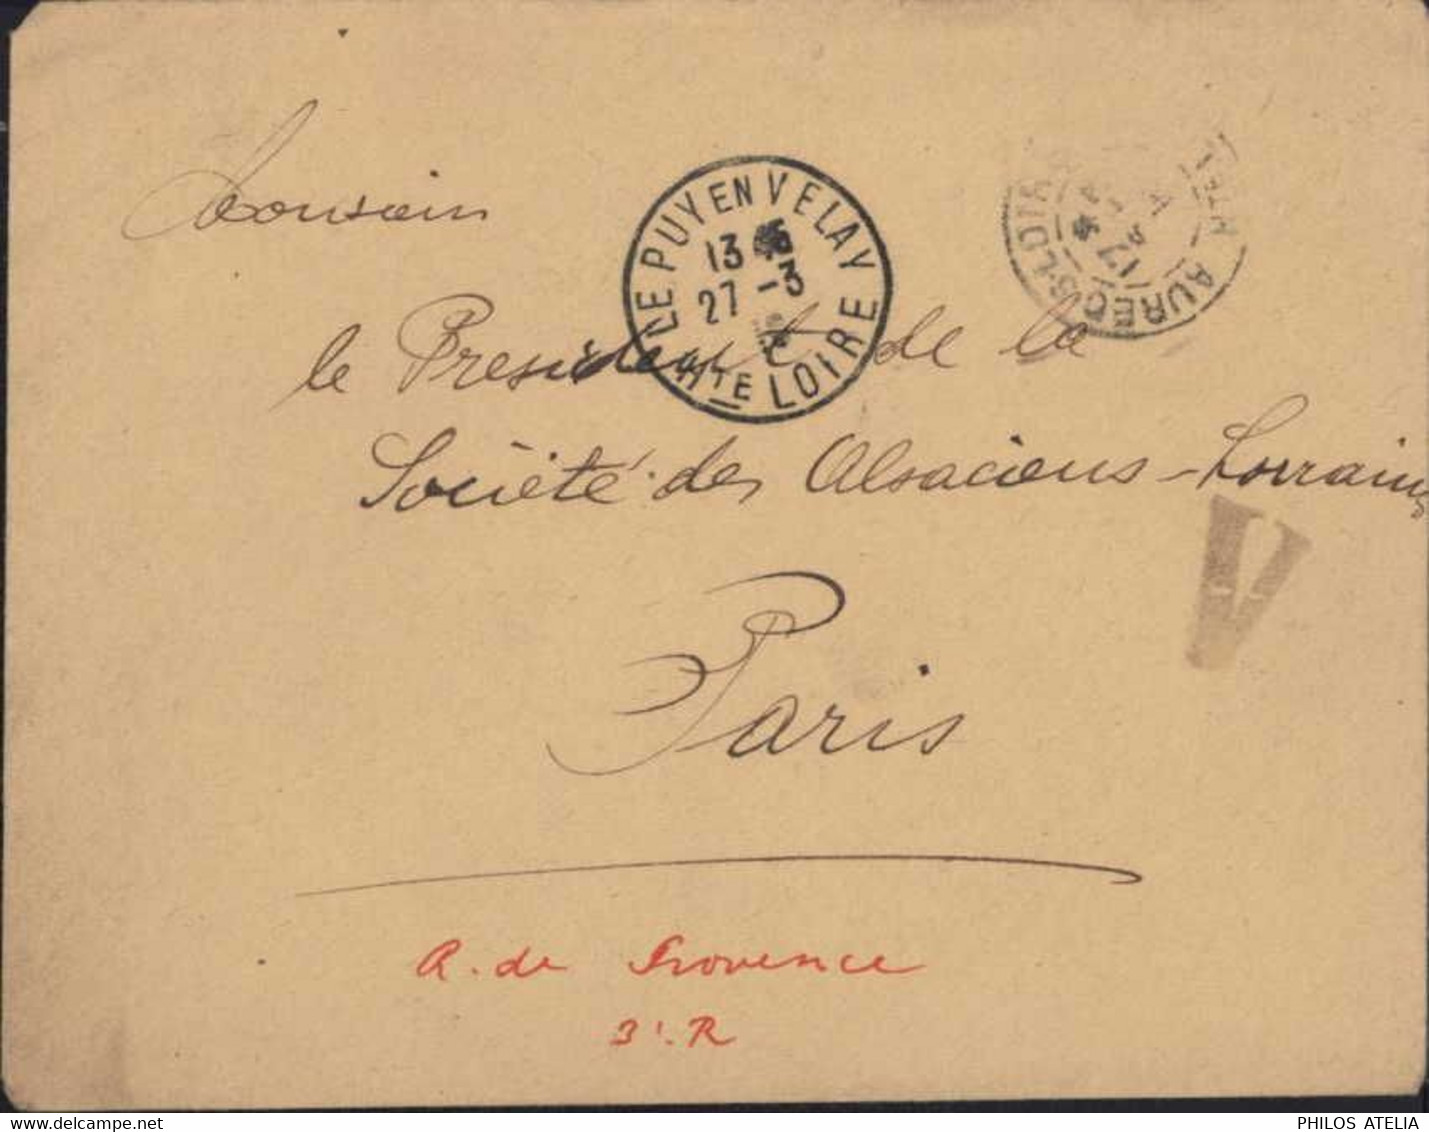 Monsieur
le President de la
Société des Alsaciens-Lorrains
Paris
R. de Provence
3'. R
LE PUY EN VELAY
13 45
27 -3
HTE LOIRE
AUREC-S-LOIRE
17
HTE L
V
PHILOS ATELIA